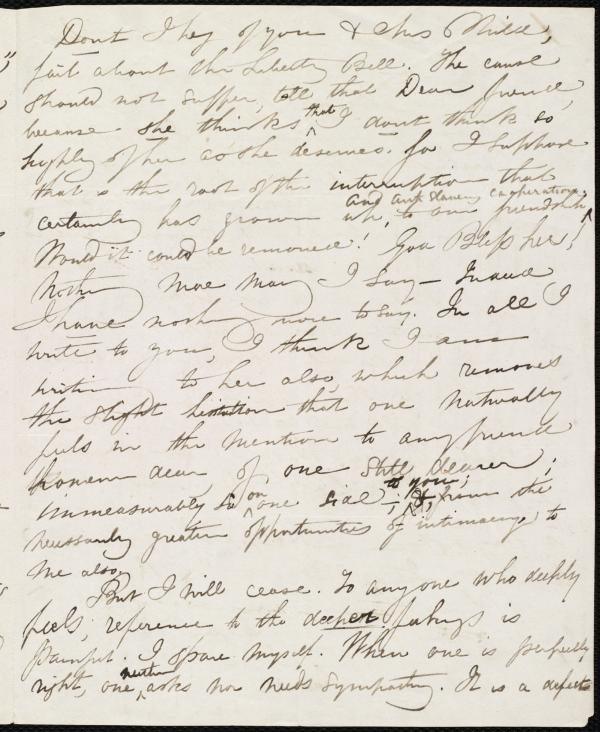 Don't I beg of you & Mrs Child,
fail about the Liberty Bell. The cause
should not suffer, tell that Dear friend,
because she thinks that I don't think so
highly of her as she deserves. for I suppose
that is the root of the interruption that
certainly has grown up, to our friendship and anti slavery cooperation.
Would it could be removed! God Bless her!
Nothing more may I say — Indeed
I have nothing more to say. In all I
write to you, I think I am
writing to her also, which removes
the slight hesitation that one naturally
feels in the mention to any friend
however dear, of one still dearer;
immeasurably so on one side to you, &, from the
necessarily greater opportunities of intimacy, to
me also.
But I will cease. To anyone who deeply
feels, reference to the deepest feelings is
painful. I spare myself. When one is perfectly
right, one neither asks nor needs sympathy. It is a defect